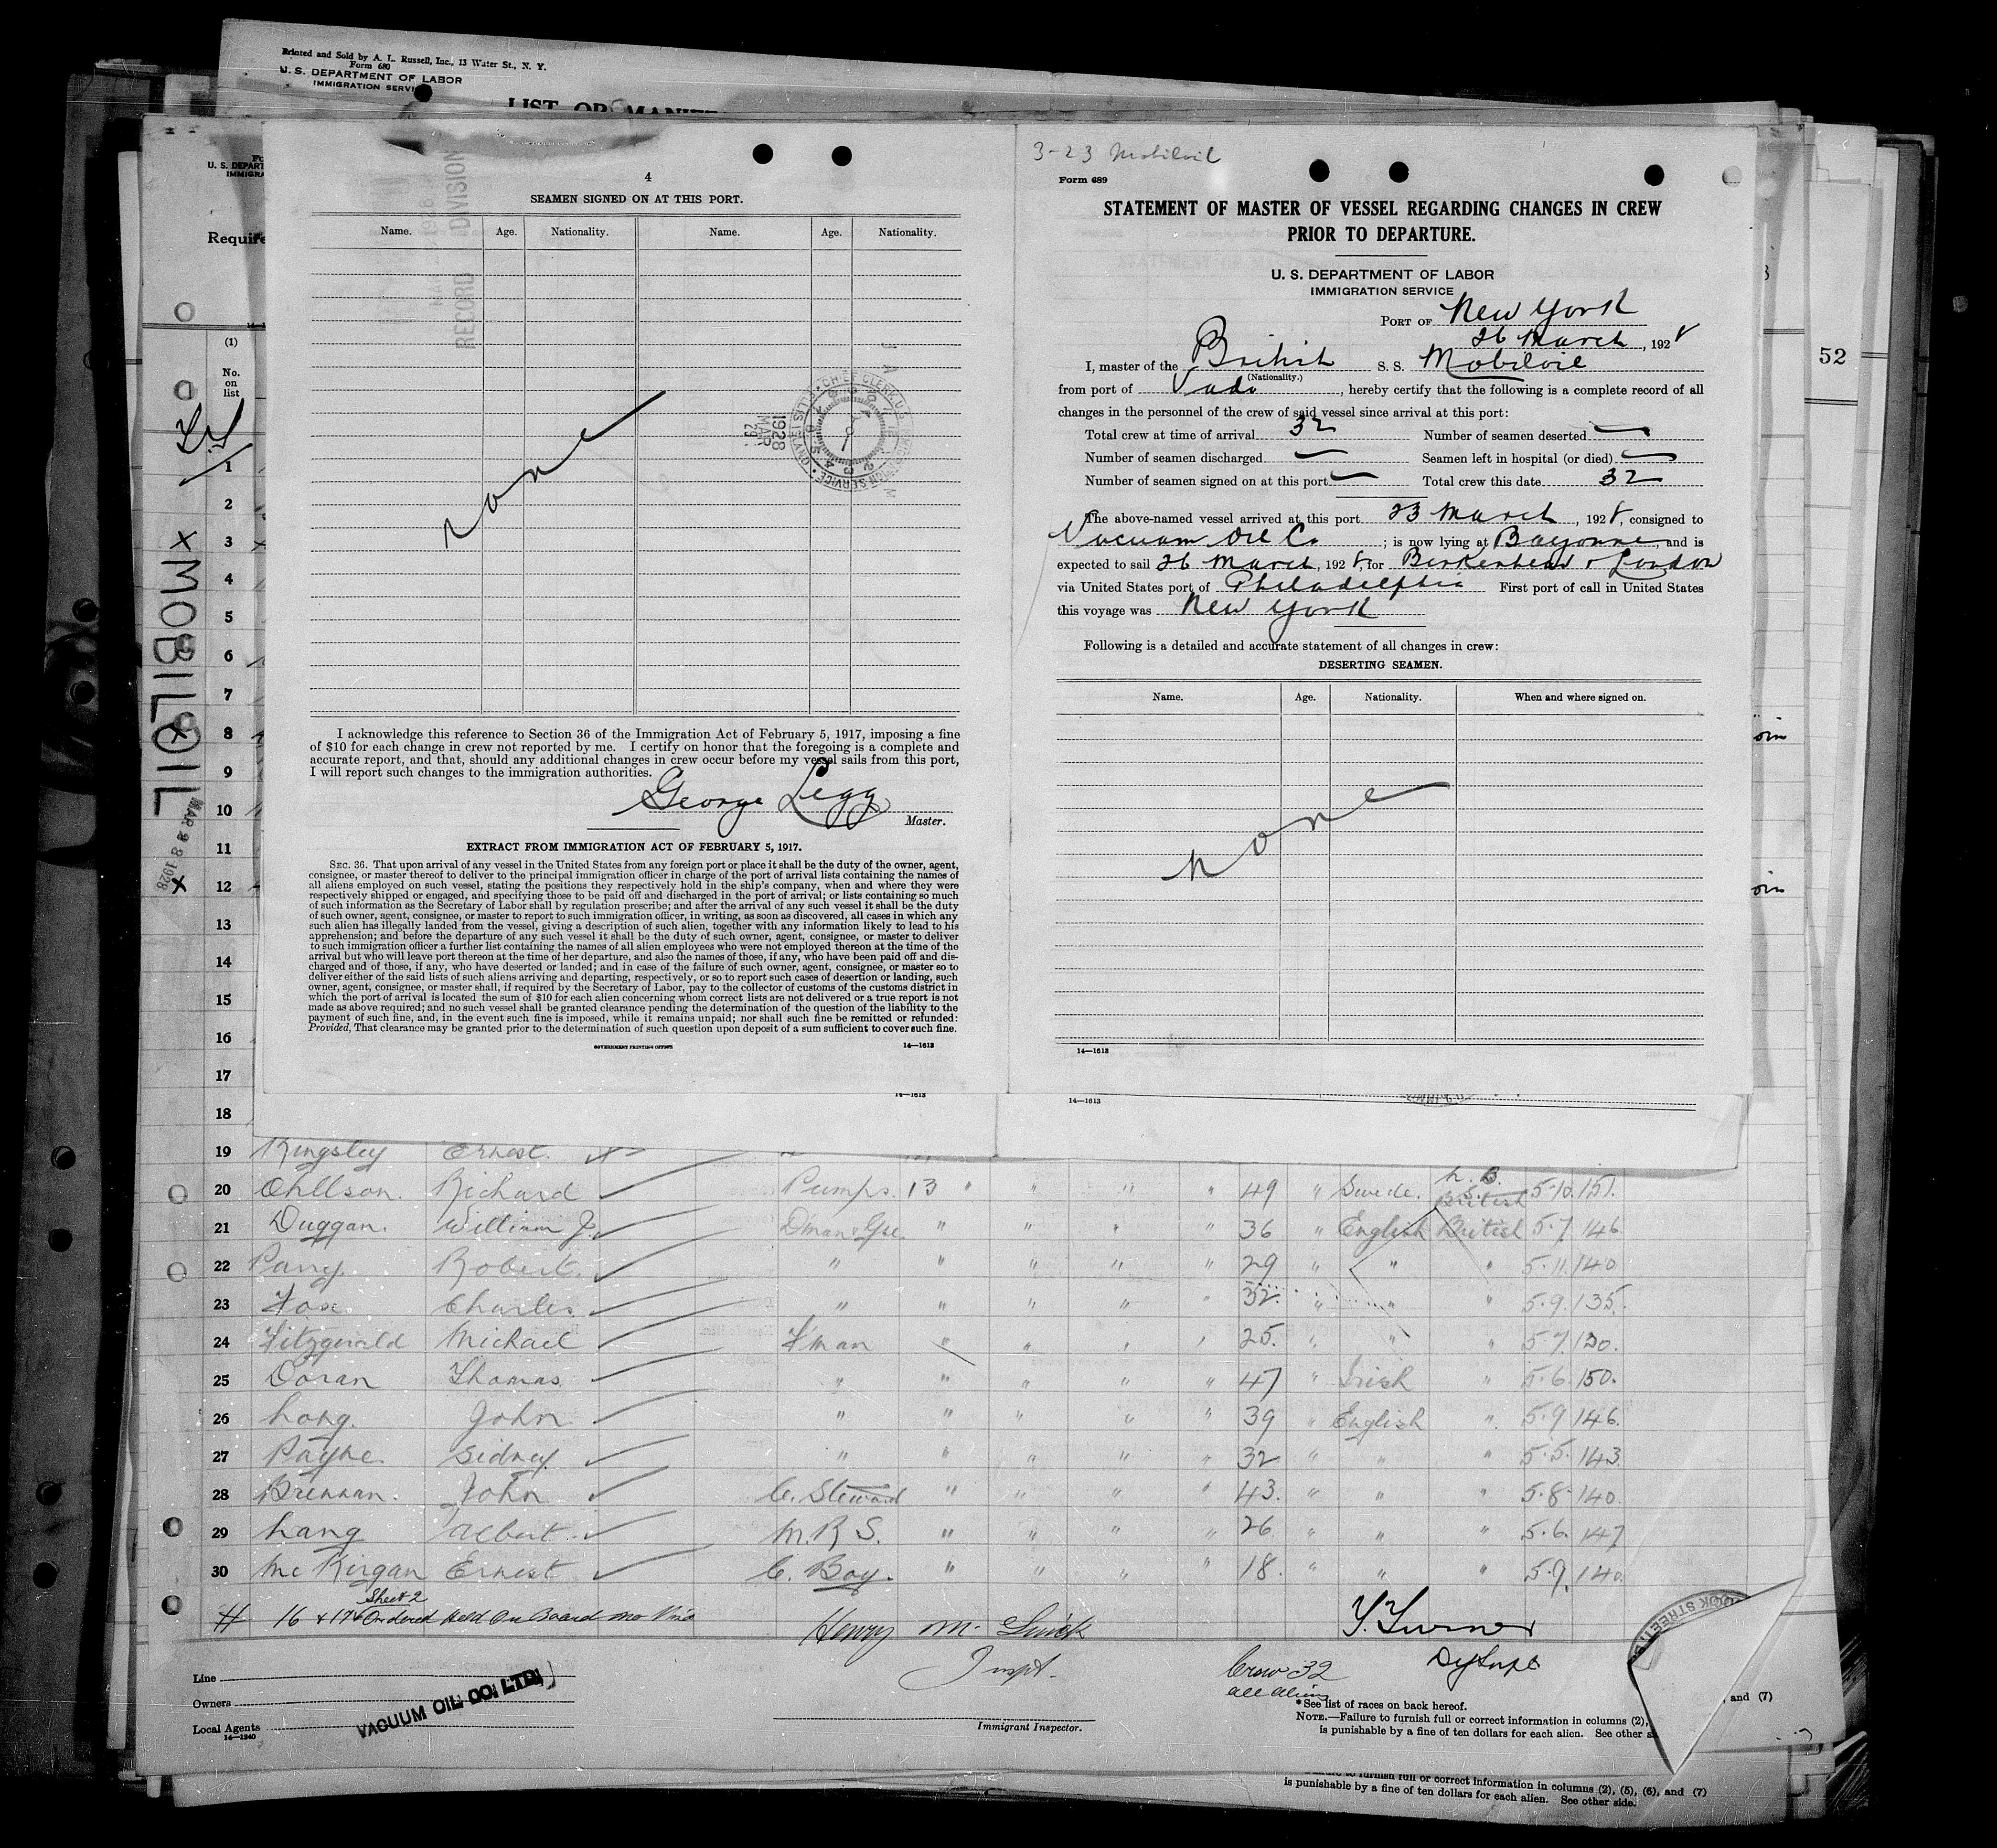 Printed and Sold by A. L. Russell, Inc., 13 Water St., N. Y.
Form 680
U. S. DEPARTMENT OF LABOR
IMMIGRATION SERVICE
LIST OR MANIFE
U. S. DEPART
IMMIGRA
Require
(1)
No.
on
list
MOBILOIL
MAR 28 1928
52
4
SEAMEN SIGNED ON AT THIS PORT.
Name. Age. Nationality. Name. Age. Nationality.
RECORD DIVISION
none
CHIEF CLERK U.S. IMMIGRATION SERVICE ELLIS ISLAND
1928 MAR 29
I acknowledge this reference to Section 36 of the Immigration Act of February 5, 1917, imposing a fine
of $10 for each change in crew not reported by me. I certify on honor that the foregoing is a complete and
accurate report, and that, should any additional changes in crew occur before my vessel sails from this port,
I will report such changes to the immigration authorities.
George Legg
Master.
EXTRACT FROM IMMIGRATION ACT OF FEBRUARY 5, 1917.
SEC. 36. That upon arrival of any vessel in the United States from any foreign port or place it shall be the duty of the owner, agent,
consignee, or master thereof to deliver to the principal immigration officer in charge of the port of arrival lists containing the names of
all aliens employed on such vessel, stating the positions they respectively hold in the ship's company, when and where they were
respectively shipped or engaged, and specifying those to be paid off and discharged in the port of arrival; or lists containing so much
of such information as the Secretary of Labor shall by regulation prescribe; and after the arrival of any such vessel it shall be the duty
of such owner, agent, consignee, or master to report to such immigration officer, in writing, as soon as discovered, all cases in which any
such alien has illegally landed from the vessel, giving a description of such alien, together with any information likely to lead to his
apprehension; and before the departure of any such vessel it shall be the duty of such owner, agent, consignee, or master to deliver
to such immigration officer a further list containing the names of all alien employees who were not employed thereon at the time of the
arrival but who will leave port thereon at the time of her departure, and also the names of those, if any, who have been paid off and dis-
charged and of those, if any, who have deserted or landed; and in case of the failure of such owner, agent, consignee, or master so to
deliver either of the said lists of such aliens arriving and departing, respectively, or so to report such cases of desertion or landing, such
owner, agent, consignee, or master shall, if required by the Secretary of Labor, pay to the collector of customs of the customs district in
which the port of arrival is located the sum of $10 for each alien concerning whom correct lists are not delivered or a true report is not
made as above required; and no such vessel shall be granted clearance pending the determination of the question of the liability to the
payment of such fine, and, in the event such fine is imposed, while it remains unpaid; nor shall such fine be remitted or refunded:
Provided, That clearance may be granted prior to the determination of such question upon deposit of a sum sufficient to cover such fine.
GOVERNMENT PRINTING OFFICE 14—1613
3-23 Mobiloil
Form 689
STATEMENT OF MASTER OF VESSEL REGARDING CHANGES IN CREW
PRIOR TO DEPARTURE.
U. S. DEPARTMENT OF LABOR
IMMIGRATION SERVICE
PORT OF New York
26 March, 1928
I, master of the British S. S. Mobiloil
(Nationality.)
from port of Vado, hereby certify that the following is a complete record of all
changes in the personnel of the crew of said vessel since arrival at this port:
Total crew at time of arrival 32 Number of seamen deserted —
Number of seamen discharged — Seamen left in hospital (or died) —
Number of seamen signed on at this port — Total crew this date 32
The above-named vessel arrived at this port 23 March, 1928, consigned to
Vacuum Oil Co; is now lying at Bayonne, and is
expected to sail 26 March, 1928, for Birkenhead & London
via United States port of Philadelphia First port of call in United States
this voyage was New York
Following is a detailed and accurate statement of all changes in crew:
DESERTING SEAMEN.
Name. Age. Nationality. When and where signed on.
none
14—1613
14—1613 14—1613
1
2
3
4
5
6
7
8
9
10
11
12
13
14
15
16
17
18
19 Kingsley Ernest
20 Ohllson Richard Pumps. 13 " " " " 49 " Swede. British 5.10. 151.
21 Duggan. William J. D'man & Gre. " " " " 36 " English British 5.7 146
22 Parry. Robert. " " " " " 29 " " " 5.11. 140
23 Fox Charles " " " " " 32. " " " 5.9. 135.
24 Fitzgerald Michael F'man " " " " 25. " " " 5.7 120.
25 Doran Thomas " " " " " 47 " Irish " 5.6. 150.
26 Long. John " " " " " 39 " English " 5.9 146.
27 Payne. Sidney " " " " " 32 " " " 5.5. 143
28 Brennan. John C. Steward " " " " 43. " " " 5.8. 140.
29 Lang Albert M.R.S. " " " " 26 " " " 5.6. 147
30 McKirgan Ernest C. Boy. " " " " 18. " " " 5.9. 140.
Sheet 2
# 16 & 17 Ordered Held On Board no Visa
Henry M.
Inspt.
Y. Turner
Crew 32
all aliens
Line
Owners
Local Agents
14—1240
VACUUM OIL CO. LTD.
Immigrant Inspector.
*See list of races on back hereof.
NOTE.—Failure to furnish full or correct information in columns (2),
is punishable by a fine of ten dollars for each alien. See other s
, and (7)
furnish full or correct information in columns (2), (5), (6), and (7)
is punishable by a fine of ten dollars for each alien. See other side.